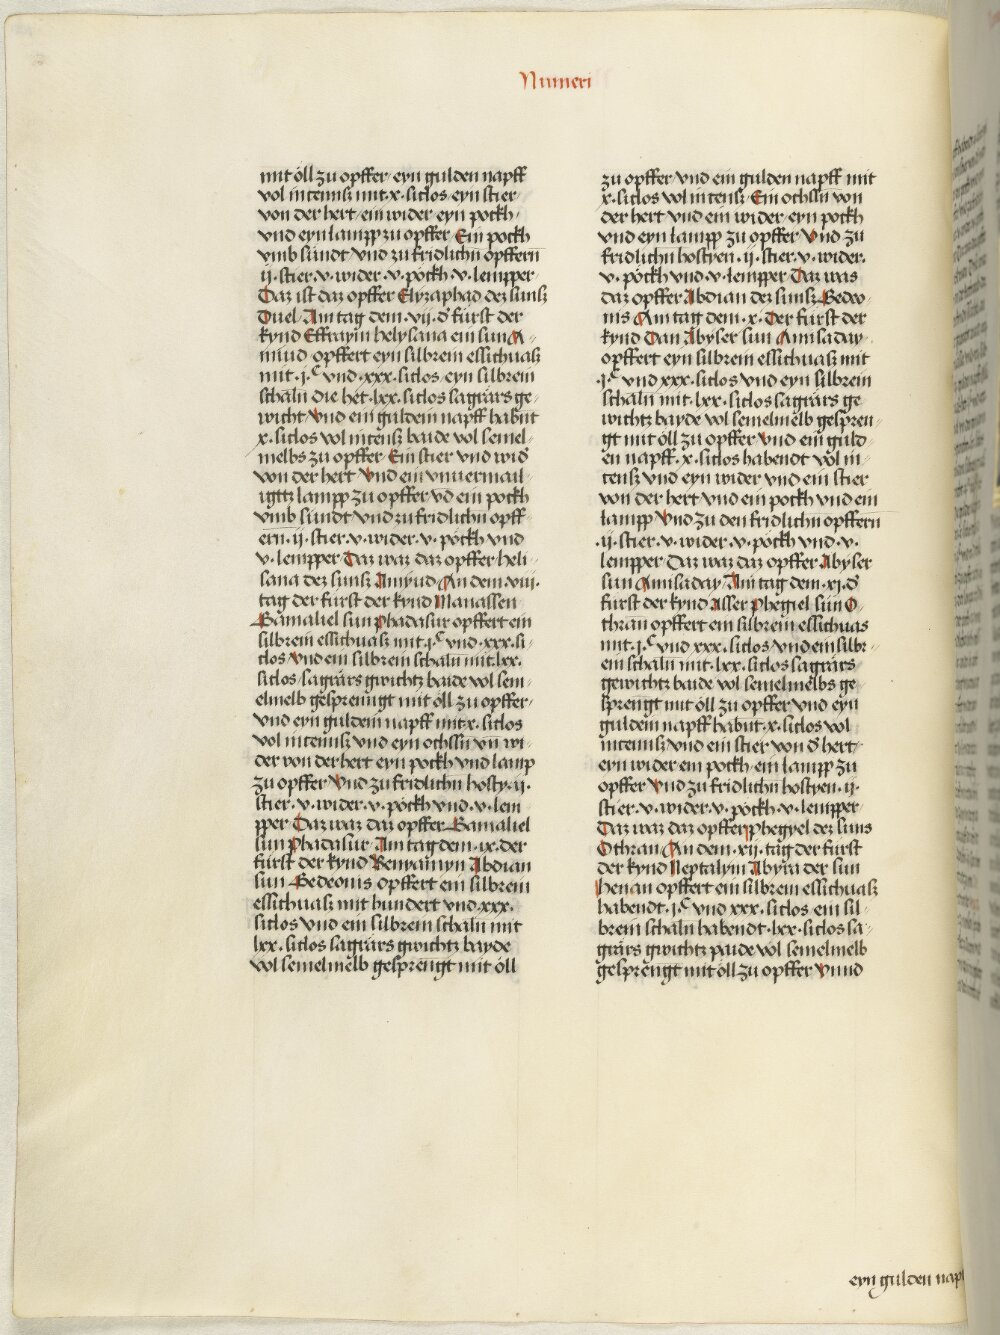 Numeri
mit öll zu opffer eyn gulden napff
vol intenns mit·x·siclos eyn stier
von der hert ein wider eyn pockh
vnd eyn lampp zu opffer Ein pockh
vmb sündt vnd zu fridlichn opffern
ij·stier·v·wider·v·pöckh·v·lempper
Daz ist daz opffer Elyzaphad dez suns
Duel Am tag dem·vij·d fürst der
kynd Effraym helysama ein sun A-
miud opffert eyn silbrem essichuas
mit·j·c vnd·xxx·siclos eyn silbrein
schaln die het·lxx·siclos sagrärs ge-
wicht Vnd ein guldein napff habnt
x·siclos vol intens baide vol semel-
melbs zu opffer Ein stier vnd wid
von der hert Vnd ein vnuermail-
igtz lampp zu opffer vd ein pockh
vmb sündt vnd zu fridlichn opff-
ern·ij·stier·v·wider·v·pöckh vnd
v·lempper Daz waz daz opffer heli-
sama dez suns Amyud An dem·viij·
tag der fürst der kynd Manassen
Gamaliel sun Phadasur opffert ein
silbrein essichuas mit·j·c vnd·xxx·si-
clos Vnd ein silbrein schaln mit·lxx·
siclos sagrärs gwichtz baide vol sem-
elmelb gesprenngt mit öll zu opffer
vnd eyn guldein napff mit·x·siclos
vol intenns vnd eyn ochssn vn wi-
der von der hert eyn pockh vnd lamp
zu opffer Vnd zu fridlichn hosty·ij·
stier·v·wider·v·pöckh vnd·v·lem
pper Daz waz daz opffer Gamaliel
sun Phadasur Am tag dem·ix·der
fürst der kynd Benyamyn Abdian
sun Gedeonis opffert ein silbrein
essichuas mit hundert vnd·xxx·
siclos vnd ein silbrein schaln mit
lxx·siclos sagrärs gwichtz bayde
vol semelmelb gesprengt mit öll
zu opffer vnd ein gulden napff mit
x·siclos vol intens Ein ochssn von
der hert vnd ein wider eyn pockh
vnd eyn lampp zu opffer Vnd zu
fridlichn hostyen·ij·stier·v·wider·
v·pöckh vnd·v·lempper Daz was
daz opffer Abdian dez suns Gedeo-
nis Am tag dem·x·Der fürst der
kynd Dan Abyser sun Amisaday
opffert eyn silbrein essichuas mit
·j·c vnd xxx·siclos vnd eyn silbrein
schaln mit·lxx·siclos sagrärs ge
wichtz bayde vol semelmelb gespren-
gt mit öll zu opffer Vnd ein guld-
en napff·x·siclos habendt vol in-
tens vnd eyn wider vnd ein stier
von der hert vnd ein pockh vnd ein
lampp Vnd zu den fridlichn opffern
·ij·stier·v·wider·v·pöckh vnd·v·
lempper Daz waz daz opffer Abyser
sun Amisaday Am tag dem·xj·d
fürst der kynd Asser Phegiel sun O-
thran opffert ein silbrein essichuas
mit·j·c vnd xxx·siclos vnd ein silbr-
ein schaln mit·lxx·siclos sagrärs
gewichtz baide vol semelmelbs ge
sprengt mit öll zu opffer vnd eyn
guldein napff habnt·x·siclos vol
intenns vnd ein stier von d hert
eyn wider ein pockh ein lampp zu
opffer Vnd zu fridlichn hostyen·ij·
stier·v·wider·v·pöckh·v·lempper
Daz waz daz opffer Phegyel dez suns
Othran An dem·xij·tag der fürst
der kynd Neptalym Abyra der sun
henan opffert ein silbrein essichuas
habendt·j·c vnd xxx·siclos ein sil-
brein schaln habendt·lxx·siclos sa-
grärs gwichtz paide vol semelmelb
gesprengt mit öll zu opffer Vnnd
eyn gulden napf